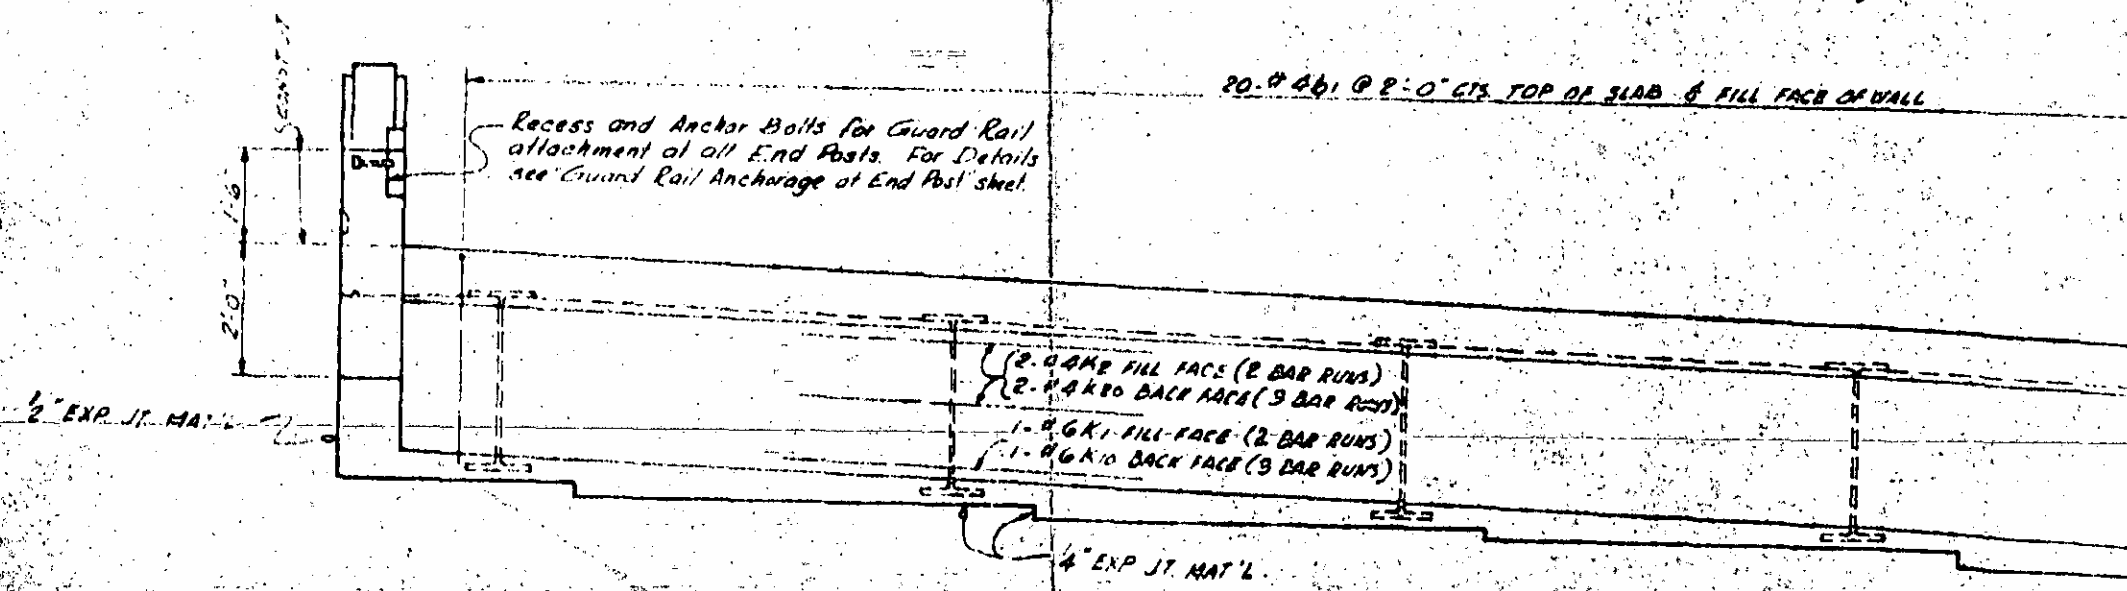 CONST. JT
20-#4b1 @ 2'-0" CTS. TOP OF SLAB & FILL FACE OF WALL
Recess and Anchor Bolts for Guard Rail
attachment at all End Posts. For Details
see "Guard Rail Anchorage at End Post" sheet.
1'-6"
2'-0"
2-#4K2 FILL FACE (2 BAR RUNS)
2-#4K20 BACK FACE (3 BAR RUNS)
1/2" EXP. JT. MAT'L
1-#6K1 FILL FACE (2 BAR RUNS)
1-#6K10 BACK FACE (3 BAR RUNS)
1/4" EXP JT. MAT'L.